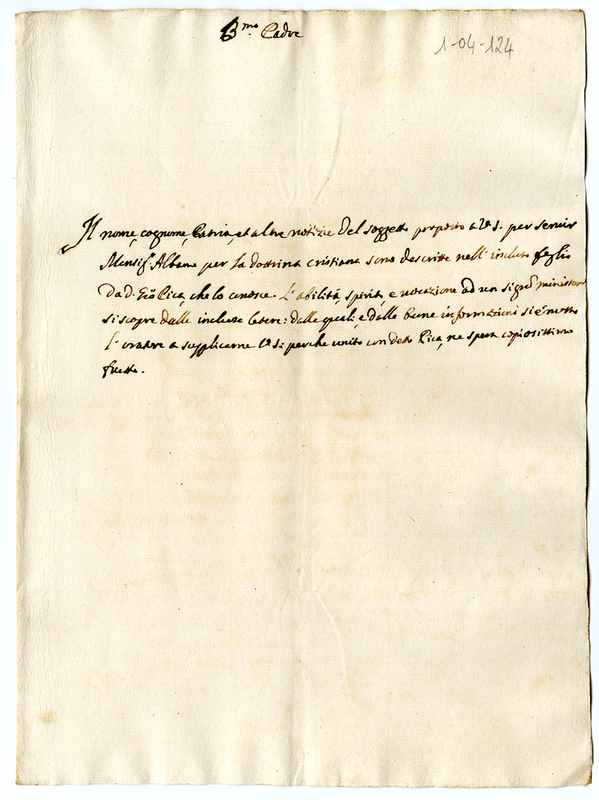 B.mo Padre
1-04-124
Il nome, cognome, Patria, et altre notizie del soggetto proposto a V.S. per servir
Monsig.r Albano per la dottrina cristiana sono descritte nell'incluso foglio
da d. Gio Pica, che lo conosce. L'abilità, spirito, e vocazione ad un sì gr ministero
si scopre dalle incluse lettere: dalle quali, e dalle buone informazioni si è mosso
l'oratore a supplicarne V.S. perche unito con detto Pica, ne spera copiosissimo
frutto.